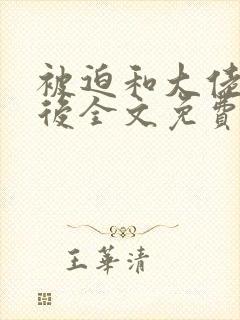 被迫和大佬
後全文免費
王華清